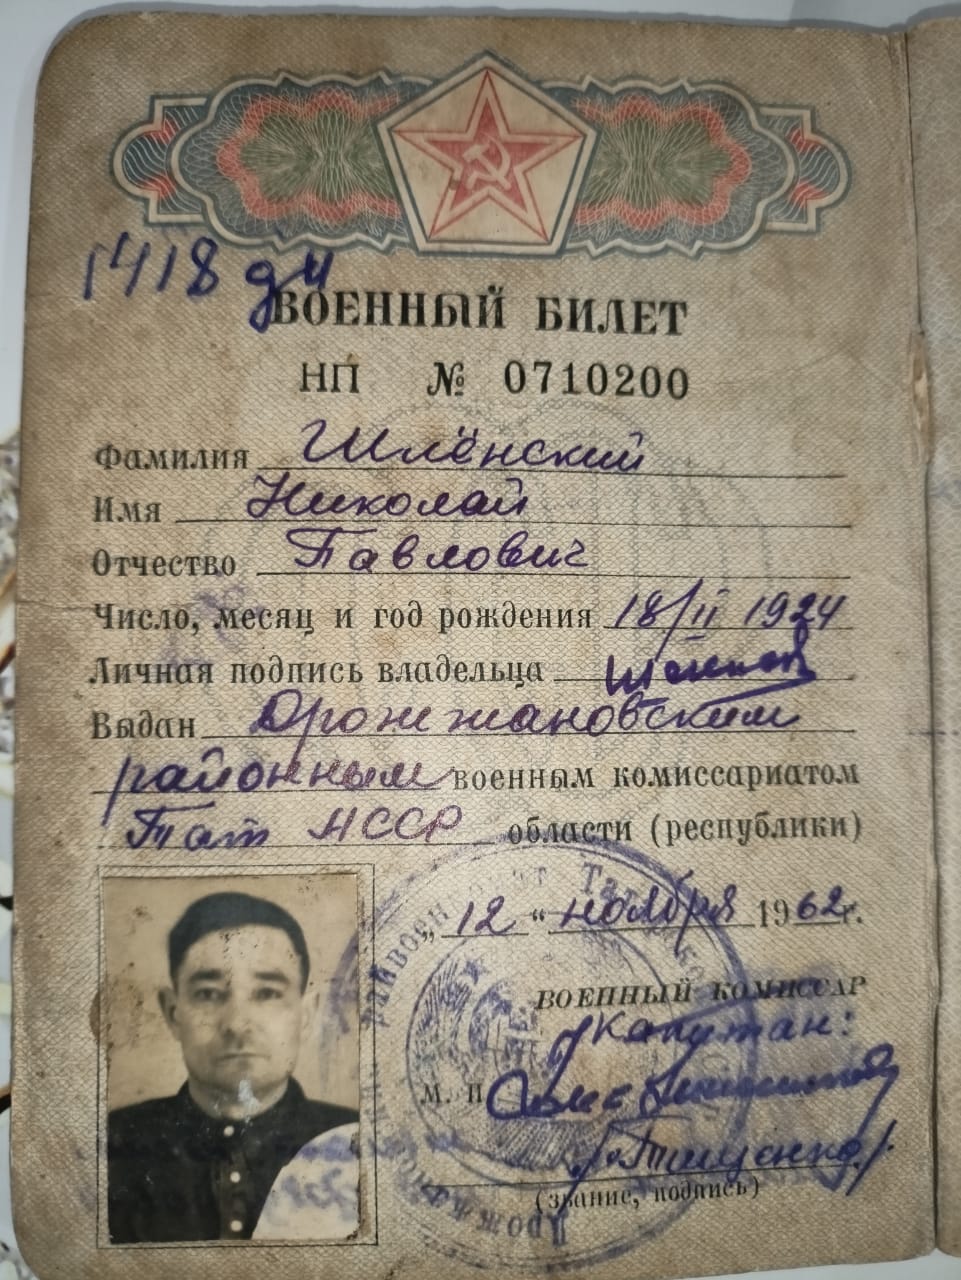 1418 дн
ВОЕННЫЙ БИЛЕТ
НП № 0710200
Фамилия Шлёнский
Имя Николай
Отчество Павлович
Число, месяц и год рождения 18/II 1924
Личная подпись владельца
Выдан Дрожжановским
районным военным комиссариатом
Тат АССР области (республики)
„12“ ноября 1962г.
ВОЕННЫЙ КОМИССАР
Капитан:
М. П.
/Тищенко/.
(звание, подпись)